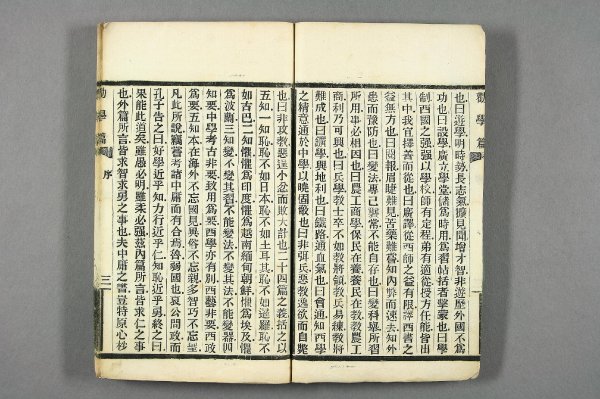 勸學篇
也曰遊學明時勢長志氣擴見聞增才智非遊歷外國不爲
功也曰設學廣立學堂儲爲時用爲習帖括者擊蒙也曰學
制西國之强强以學校師有定程弟有適從授方任能皆出
其中我宜擇善而從也曰廣譯從西師之益有限譯西書之
益無方也曰閱報眉睫難見苦藥難嘗知內弊而速去知外
患而豫防也曰變法專己襲常不能自存也曰變科舉所習
所用事必相因也曰農工商學保民在養養民在教教農工
商利乃可興也曰兵學教士卒不如教將領教兵易練教將
難成也曰礦學興地利也曰鐵路通血氣也曰會通知西學
之精意通於中學以曉固蔽也曰非弭兵惡教逸欲而自斃
也曰非攻教惡逞小忿而敗大計也二十四篇之義括之以
五知一知恥恥不如日本恥不如土耳其恥不如暹羅恥不
如古巴二知懼懼爲印度懼爲越南緬甸朝鮮懼爲埃及懼
爲波蘭三知變不變其習不能變法不變其法不能變器四
知要中學考古非要致用爲要西學亦有別西藝非要西政
爲要五知本在海外不忘國見異俗不忘親多智巧不忘聖
凡此所說竊嘗考諸中庸而有合焉魯弱國也哀公問政而
孔子告之曰好學近乎知力行近乎仁知恥近乎勇終之曰
果能此道矣雖愚必明雖柔必强茲內篇所言皆求仁之事
也外篇所言皆求智求勇之事也夫中庸之書豈特原心杪
勸學篇 序 三